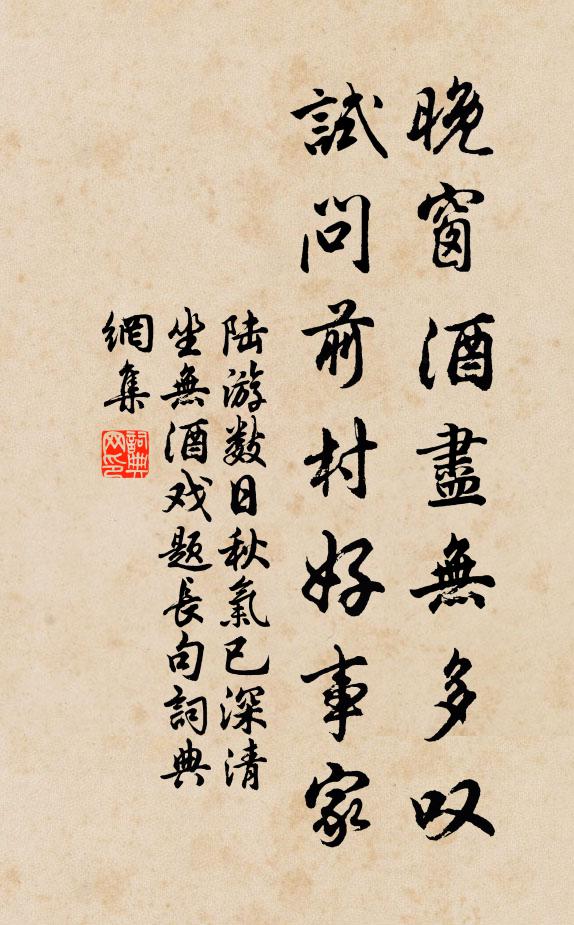 晚窗酒盡無多叹
試問前村好事家
陆游数日秋氣已深清
坐無酒戏题長句詞典
網集
詞典
网印